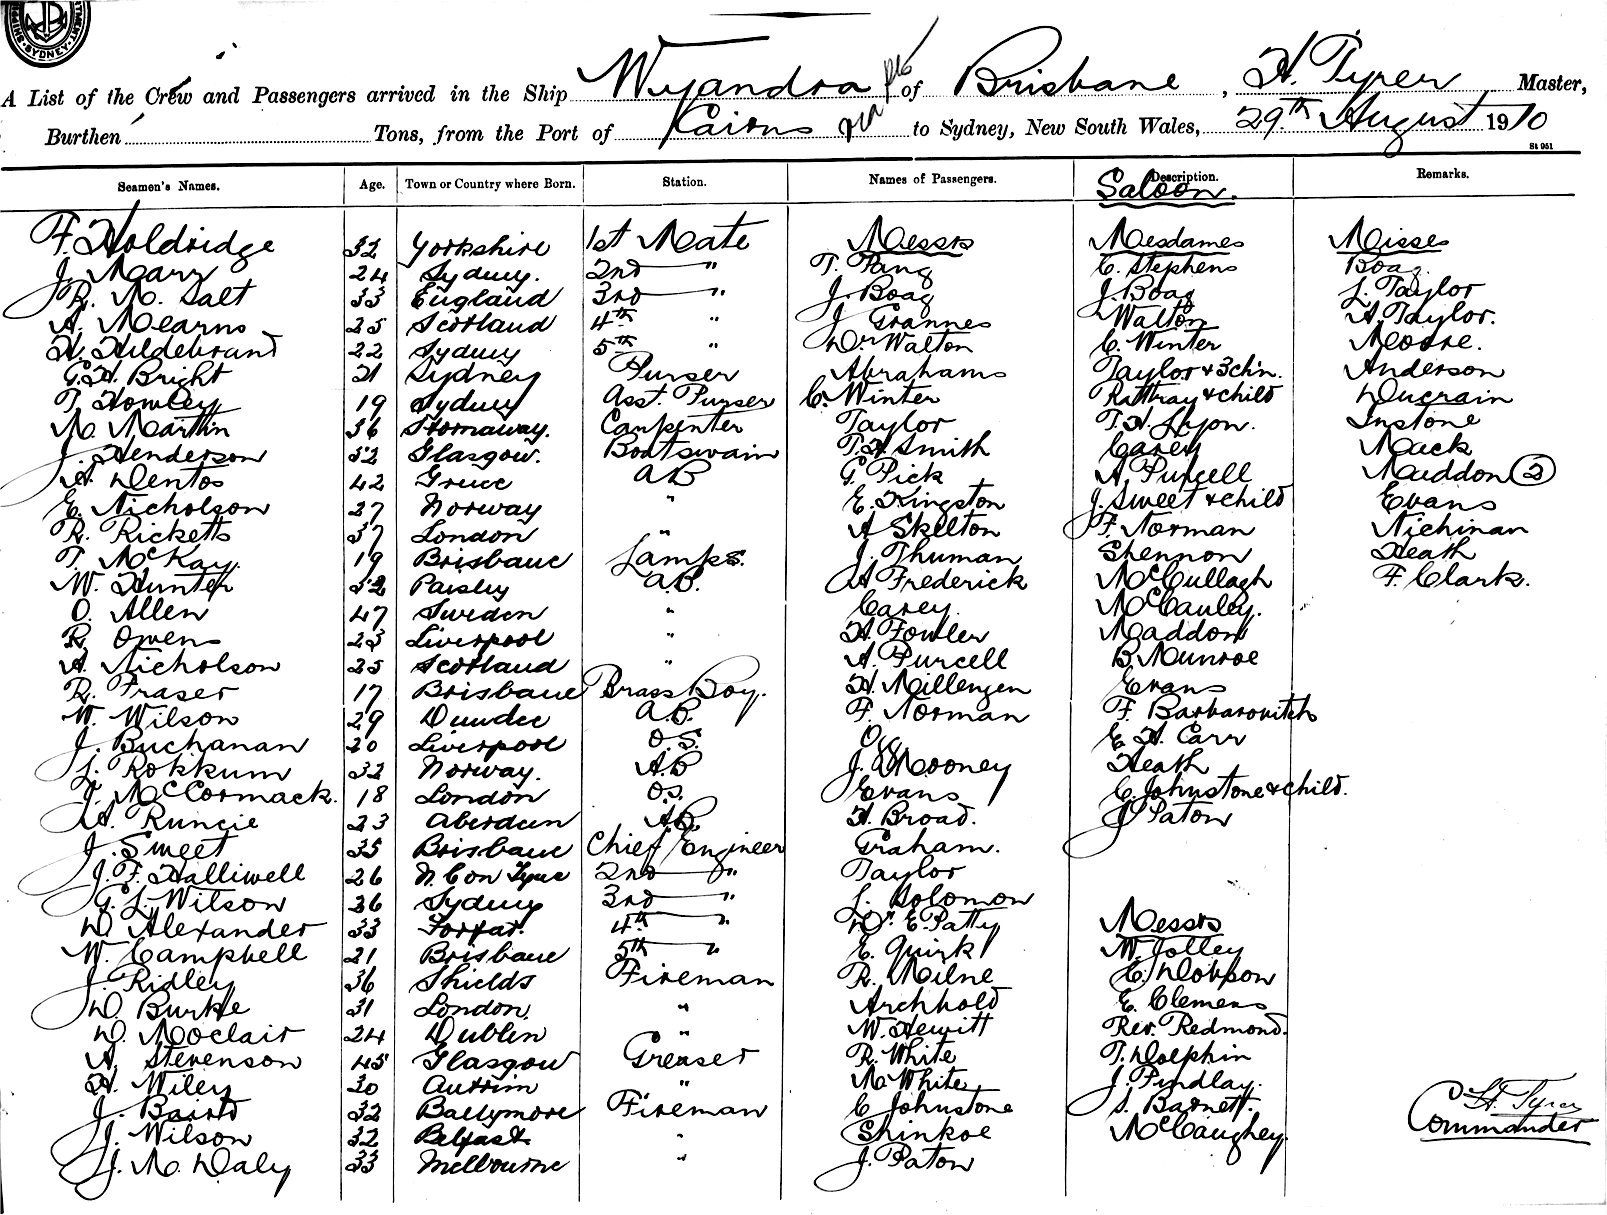 SYDNEY
A List of the Crew and Passengers arrived in the Ship Wyandra of Brisbane, H. Tyrer Master,
Burthen Tons, from the Port of Cairns to Sydney, New South Wales, 29th August 1910
St 951
Seamen's Names. Age. Town or Country where Born. Station. Names of Passengers. Description. Remarks.
Saloon.
F. Holdridge 32 Yorkshire 1st Mate Messrs Mesdames Misses
J. Marr 24 Sydney. 2nd " T. Pang C. Stephens Boag.
R. M. Salt 33 England 3rd " J. Boag J. Boag L. Taylor
A. Mearns 25 Scotland 4th " J. Grannes Walton A. Taylor.
H. Hildebrand 22 Sydney 5th " Dr Walton C. Winter Moore.
G. H. Bright 21 Sydney Purser Abrahams Taylor & 3 ch'n. Anderson
T. Howley 19 Sydney Asst. Purser C. Winter Rattray & child Ducrain
M. Martin 36 Stornaway. Carpenter Taylor T. H. Lyon. Instone
J. Henderson 52 Glasgow. Boatswain T. H Smith Carey Mack
A. Dentos 42 Greece AB G. Pick A. Purcell Maddon (2)
E. Nicholson 27 Norway " E. Kingston J. Sweet & child Evans
R. Ricketts 37 London " A Skelton F. Norman Nichinan
T. McKay. 19 Brisbane Lamps. J. Thuman Shennon Heath
W. Hunter 52 Paisley A.B. A Frederick McCullagh F. Clark.
O. Allen 47 Sweden " Carey. McCauley.
R. Owens 23 Liverpool " H Fowler Maddon
A. Nicholson 25 Scotland " A. Purcell B. Munroe
R. Fraser 17 Brisbane Brass Boy. H. Millengen Evans
W. Wilson 29 Dundee A.B. F. Norman F. Barbarovitch
J. Buchanan 20 Liverpool O.S. E. H. Carr
L. Rokkum 32 Norway. A.B J. Mooney Heath
J. McCormack. 18 London O.S. Evans C. Johnstone & child.
A. Runcie 23 Aberdeen AB. H. Broad. J Paton
J. Sweet 35 Brisbane Chief Engineer Graham.
J. F. Halliwell 26 N C on Tyne 2nd " Taylor
G. L. Wilson 36 Sydney 3rd " L. Solomon
D. Alexander 33 Forfar. 4th " Dr. E. Patty Messrs
W. Campbell 21 Brisbane 5th " E. Quirk W. Jolley
J. Ridley 36 Shields Fireman R. Milne C. Dobson
D. Burke 31 London. " Archbold E. Clemens
D. Moclair 24 Dublin " W. Hewitt Rev. Redmond.
A. Stevenson 45 Glasgow Greaser R. White T. Dolphin
H. Wiley 30 Antrim " M. White J. Findlay.
J. Baird 32 Ballymore Fireman C Johnstone S. Barnett. H. Tyrer
J. Wilson 32 Belfast " Shinkoe McCaughey. Commander
J. M. Daly 33 Melbourne " J. Paton